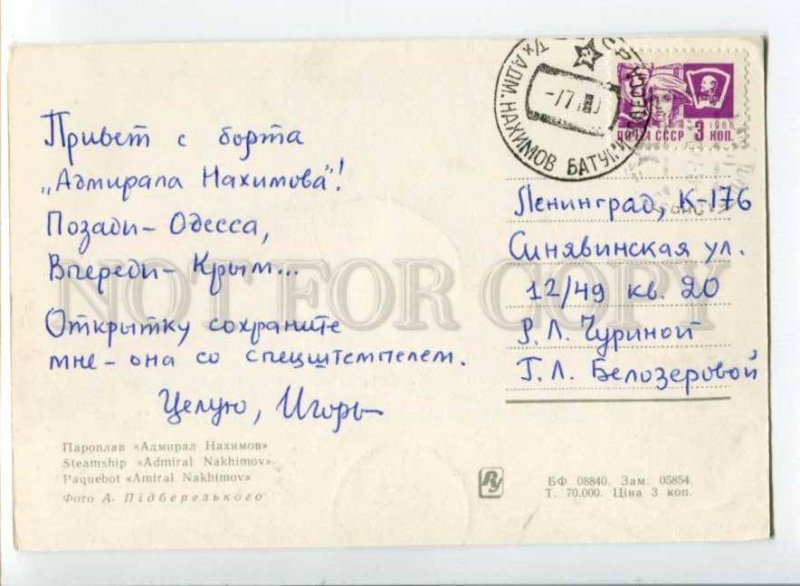 Привет с борта
„Адмирала Нахимова"!
Позади - Одесса,
Впереди - Крым...
Открытку сохраните
мне - она со спецштемпелем.
Целую, Игорь
Пароплав «Адмирал Нахимов»
Steamship «Admiral Nakhimov»
Paquebot «Amiral Nakhimov»
Фото А. Підберезького
Т/х АДМ. НАХИМОВ БАТУМИ
ПОЧТА СССР 1966 3 КОП.
Ленинград, К-176
Синявинская ул.
12/49 кв. 20
Р. Л. Чуриной
Г. Л. Белозеровой
БФ 08840. Зам. 05854.
Т. 70.000. Ціна 3 коп.
NOT FOR COPY